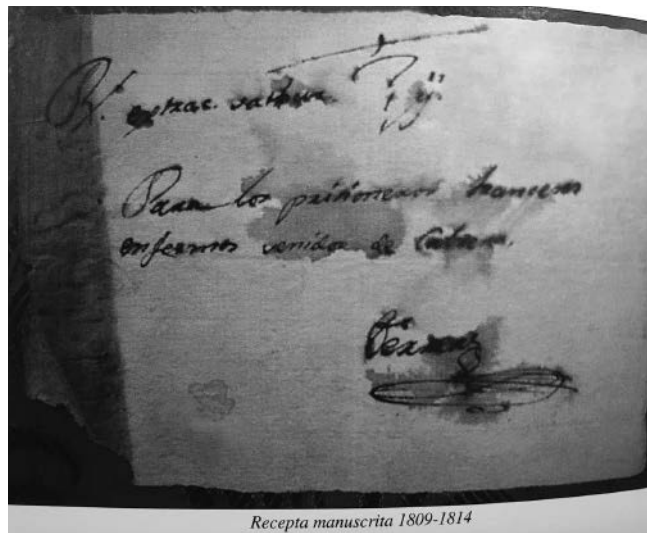 Rx. extrac. saturn. ℥ ij.
Para los prisioneros franceses
enfermos venidos de Cabrera.
Recepta manuscrita 1809-1814